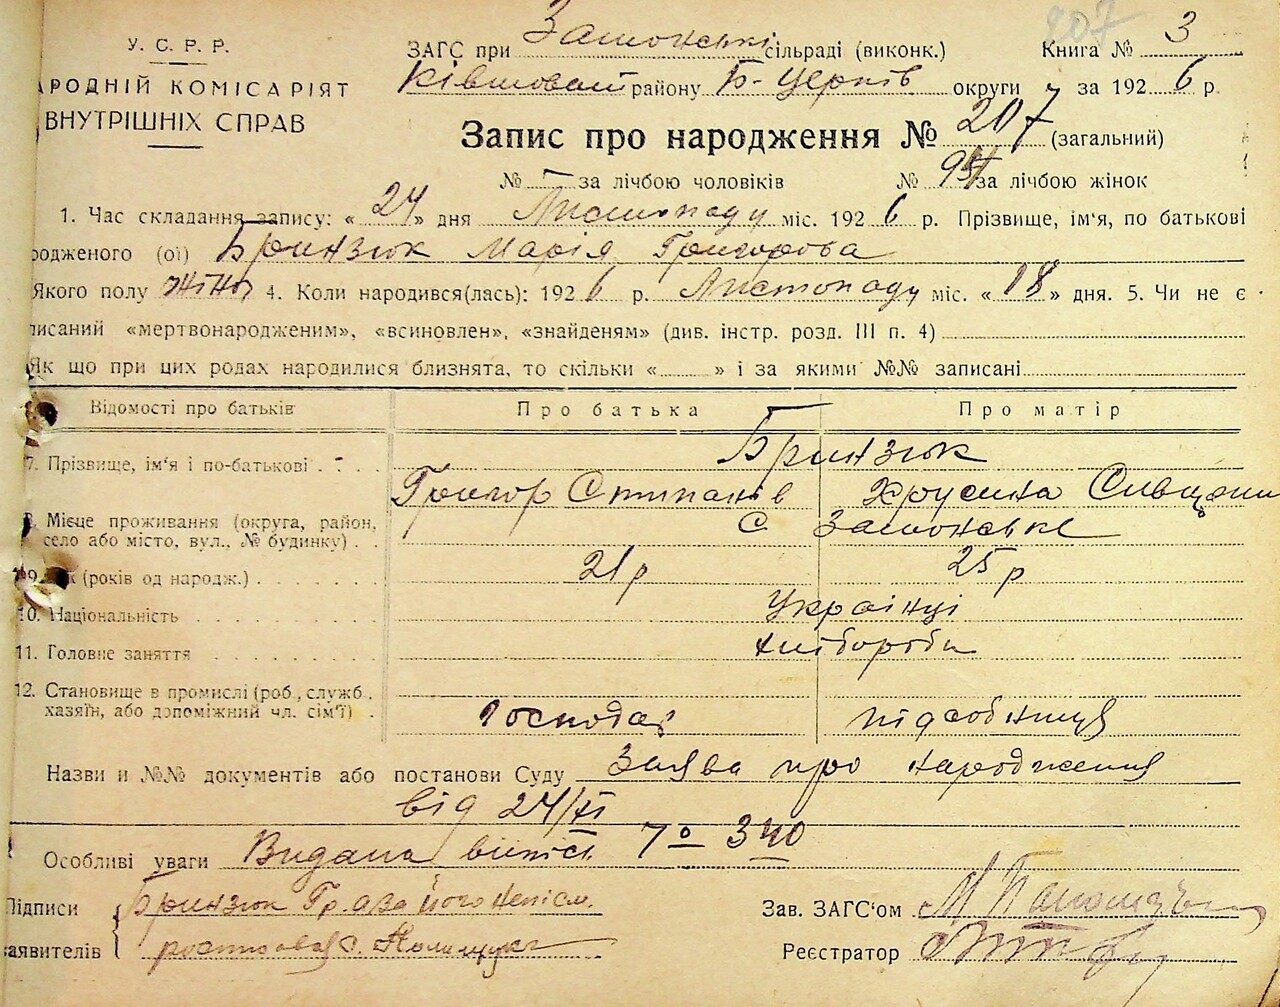 У. С. Р. Р.
АРОДНІЙ КОМІСАРІЯТ
ВНУТРІШНІХ СПРАВ
207
ЗАГС при сільраді (виконк.) Книга № 3
району Б-Церків округи за 1926 р.
Запис про народження № 207 (загальний)
№ за лічбою чоловіків № за лічбою жінок
1. Час складання запису: « 24 » дня Листопаду міс. 1926 р. Прізвище, ім'я, по батькові
родженого (ої) Бринзюк Марія Григорова
Якого полу жіно 4. Коли народився(лась): 1926 р. Листопаду міс. « 18 » дня. 5. Чи не є
писаний «мертвонародженим», «всиновлен», «знайденям» (див. інстр. розд. III п. 4)
Як що при цих родах народилися близнята, то скільки « » і за якими №№ записані
Відомості про батьків Про батька Про матір
7. Прізвище, ім'я і по-батькові Бринзюк
Григор Степанів Хрусина
8. Місце проживання (округа, район, село або місто, вул., № будинку) С.
9. (років од народж.) 21 р 25 р
10. Національність Українці
11. Головне заняття хлібороби
12. Становище в промислі (роб., служб.
хазяїн, або допоміжний чл. сім'ї) господар підсобниця
Назви и №№ документів або постанови Суду Заява про народження
від 24/XI
Особливі уваги Видана випис 7о 340
Підписи Бринзюк Гр. а за його непісм.
заявителів
Зав. ЗАГС'ом
Реєстратор